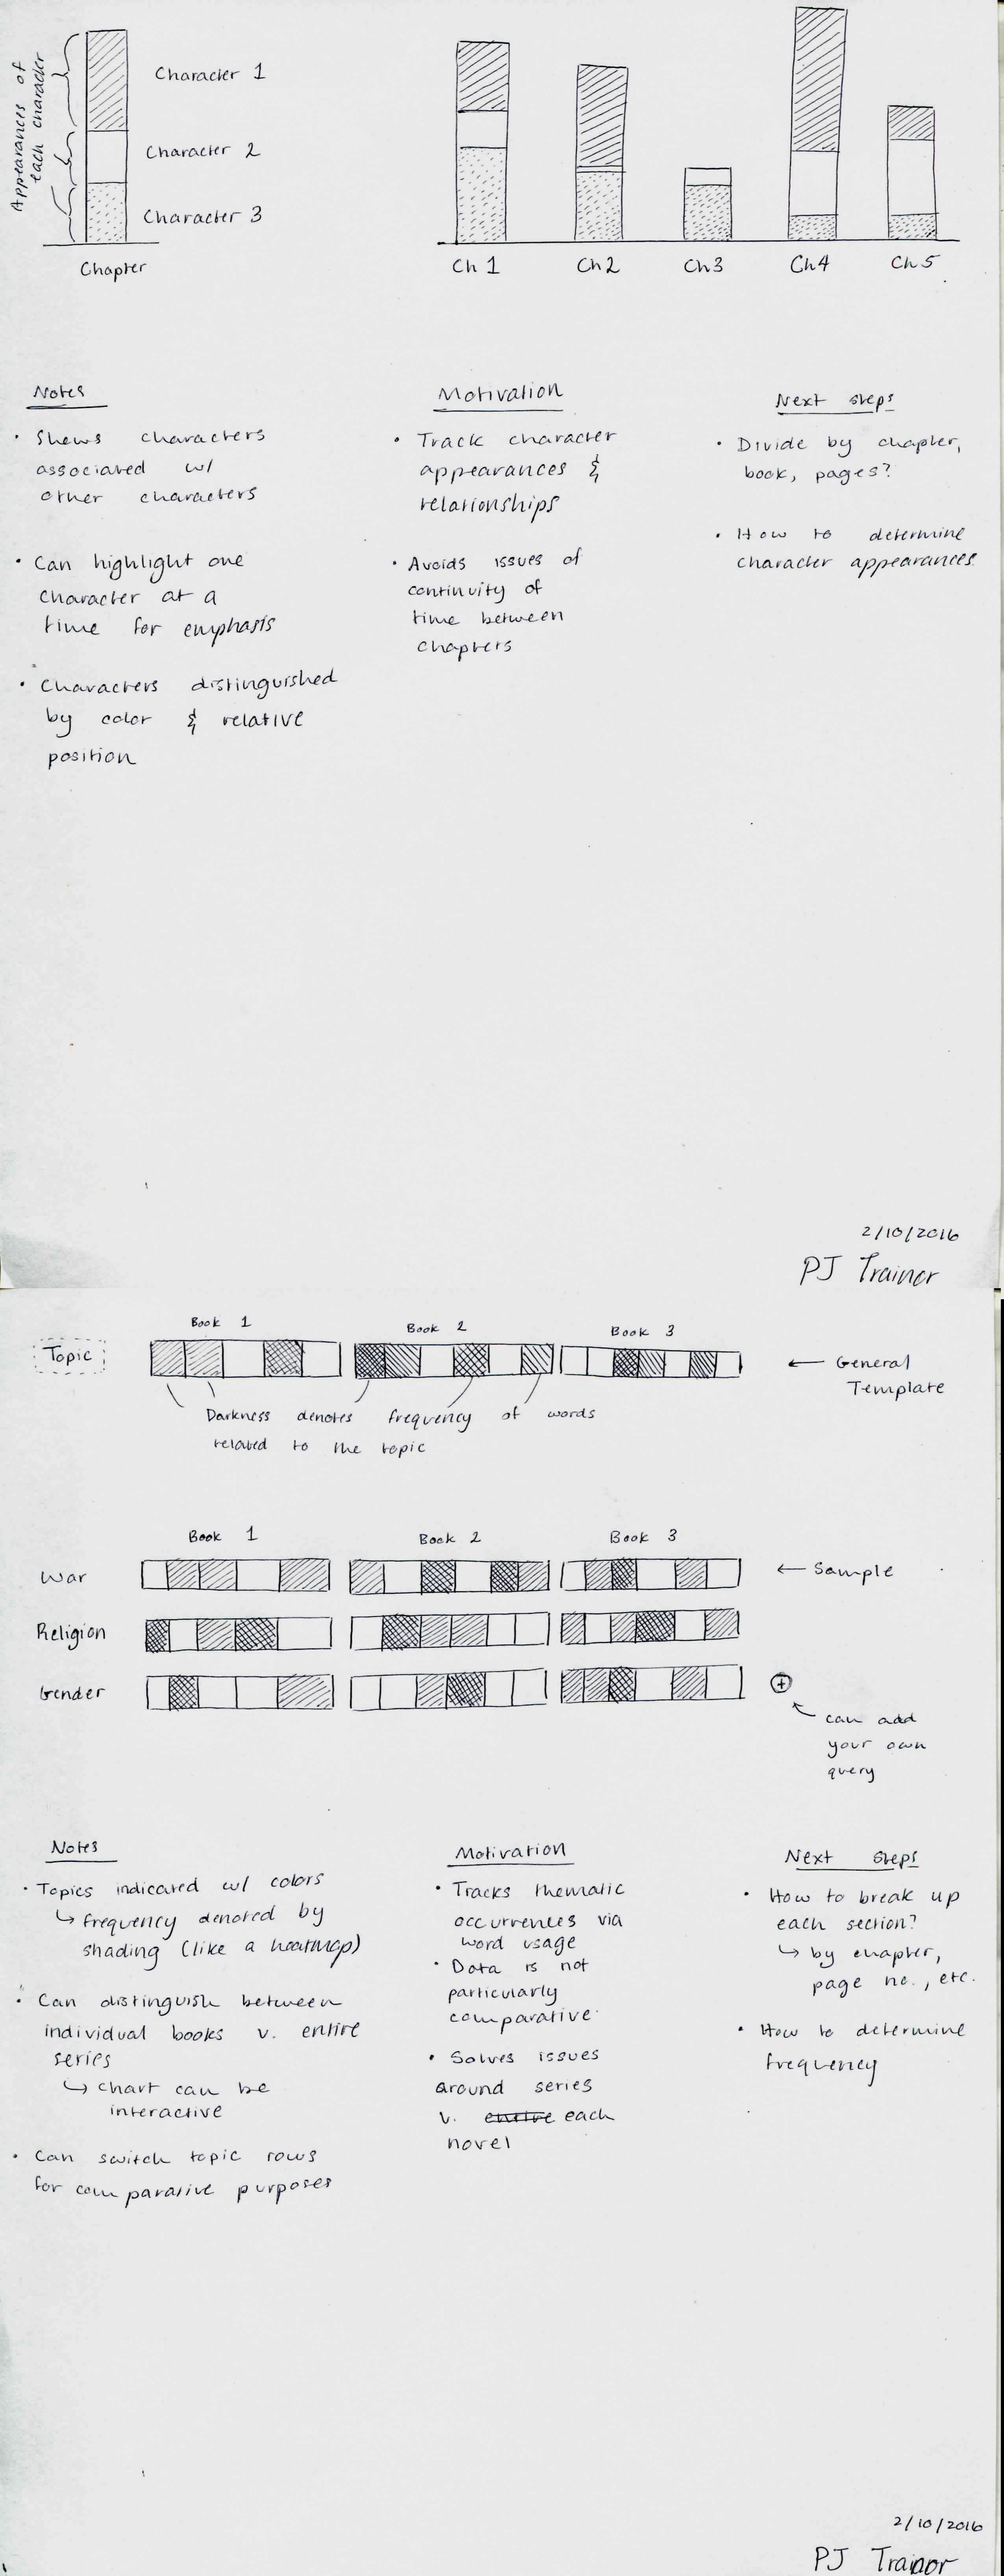 Appearances of
each character
Character 1
Character 2
Character 3
Chapter
Ch 1
Ch 2
Ch 3
Ch 4
Ch 5
Notes
• Shows characters
associated w/
other characters
• Can highlight one
character at a
time for emphasis
• Characters distinguished
by color & relative
position
Motivation
• Track character
appearances &
relationships
• Avoids issues of
continuity of
time between
chapters
Next steps
• Divide by chapter,
book, pages?
• How to determine
character appearances
2/10/2016
PJ Trainor
Topic
Book 1
Book 2
Book 3
← General
Template
Darkness denotes frequency of words
related to the topic
Book 1
Book 2
Book 3
War
← Sample
Religion
Gender
+
can add
your own
query
Notes
• Topics indicated w/ colors
↳ frequency denoted by
shading (like a heatmap)
• Can distinguish between
individual books v. entire
series
↳ chart can be
interactive
• Can switch topic rows
for comparative purposes
Motivation
• Tracks thematic
occurrences via
word usage
• Data is not
particularly
comparative
• Solves issues
around series
v. entire each
novel
Next steps
• How to break up
each section?
↳ by chapter,
page no., etc.
• How to determine
frequency
2/10/2016
PJ Trainor